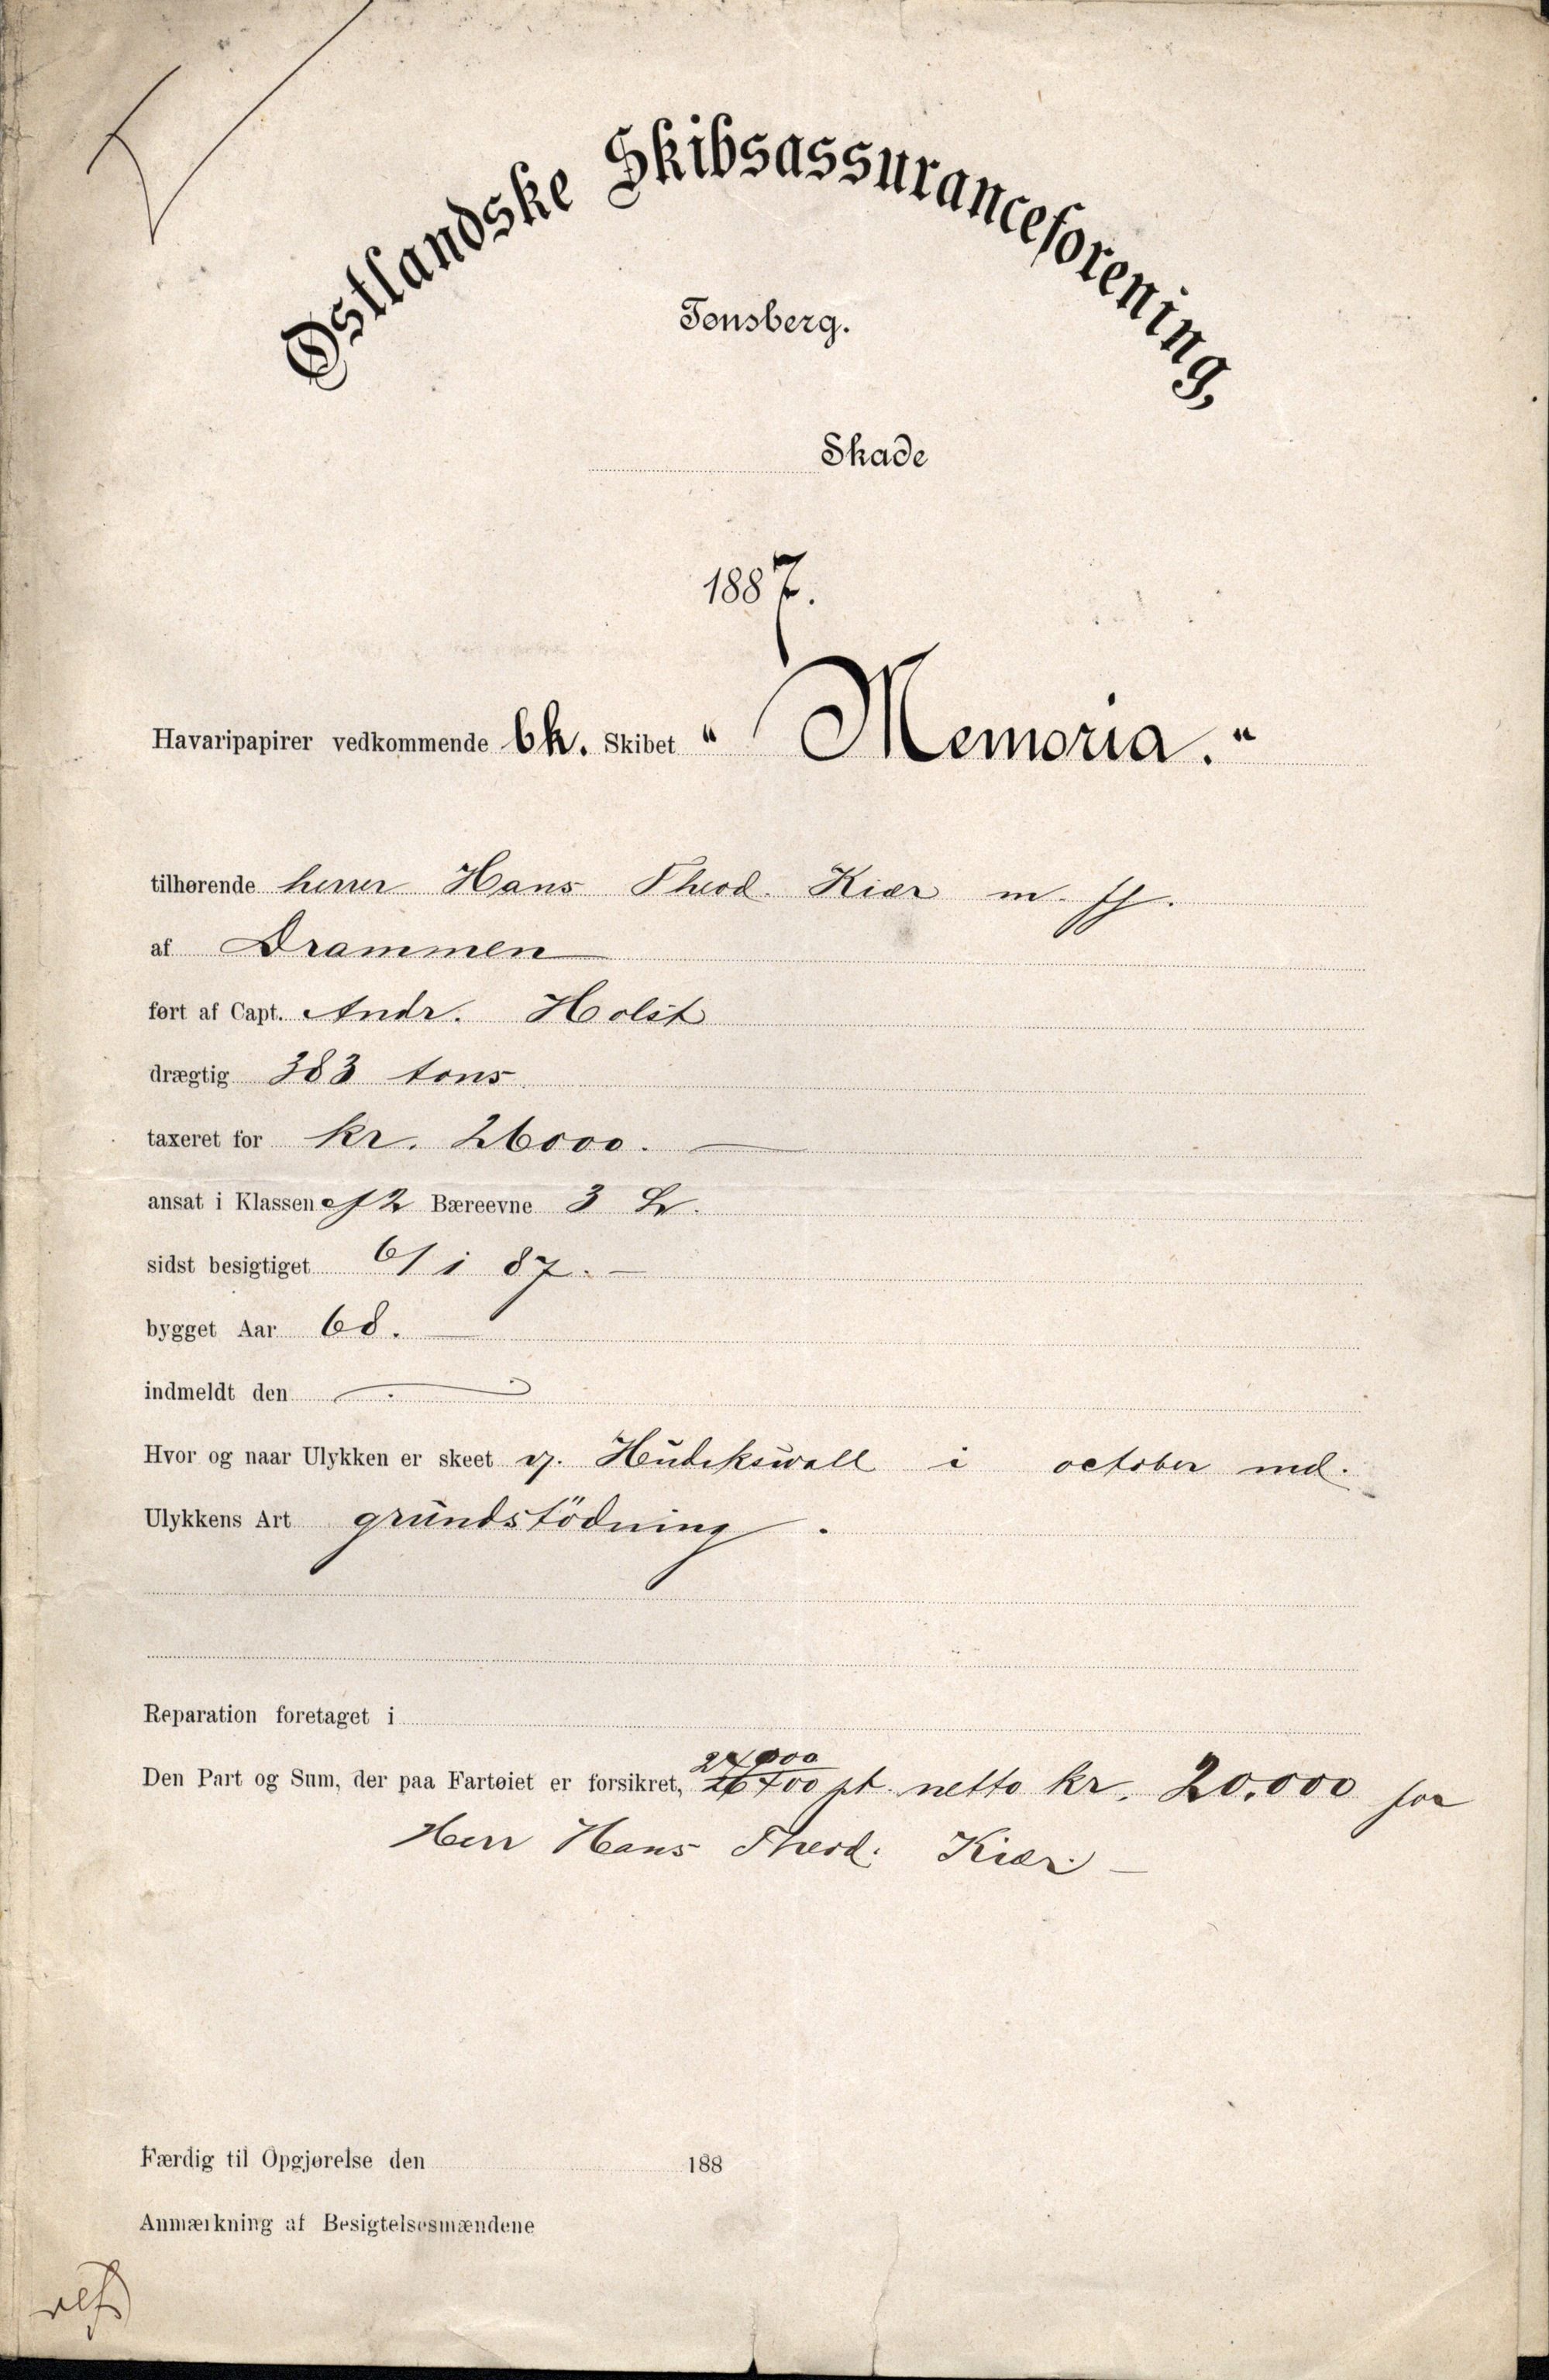 Østlandske Skibsassuranceforening,
Tønsberg.
Skade
1887.
Havaripapirer vedkommende bk. Skibet "Memoria."
tilhørende herrer Hans Theod. Kiær m. fl.
af Drammen
ført af Capt. Andr. Holst
drægtig 383 tons
taxeret for kr. 26000.—
ansat i Klassen A2 Bæreevne 3 L.
sidst besigtiget 61 i 87.—
bygget Aar 68.—
indmeldt den
Hvor og naar Ulykken er skeet v. Hudikswall i october md.
Ulykkens Art grundstödning.
Reparation foretaget i
Den Part og Sum, der paa Fartøiet er forsikret, pt. netto kr. 20.000 for
Herr Hans Theod. Kiær.—
Færdig til Opgjørelse den 188
Anmærkning af Besigtelsesmændene